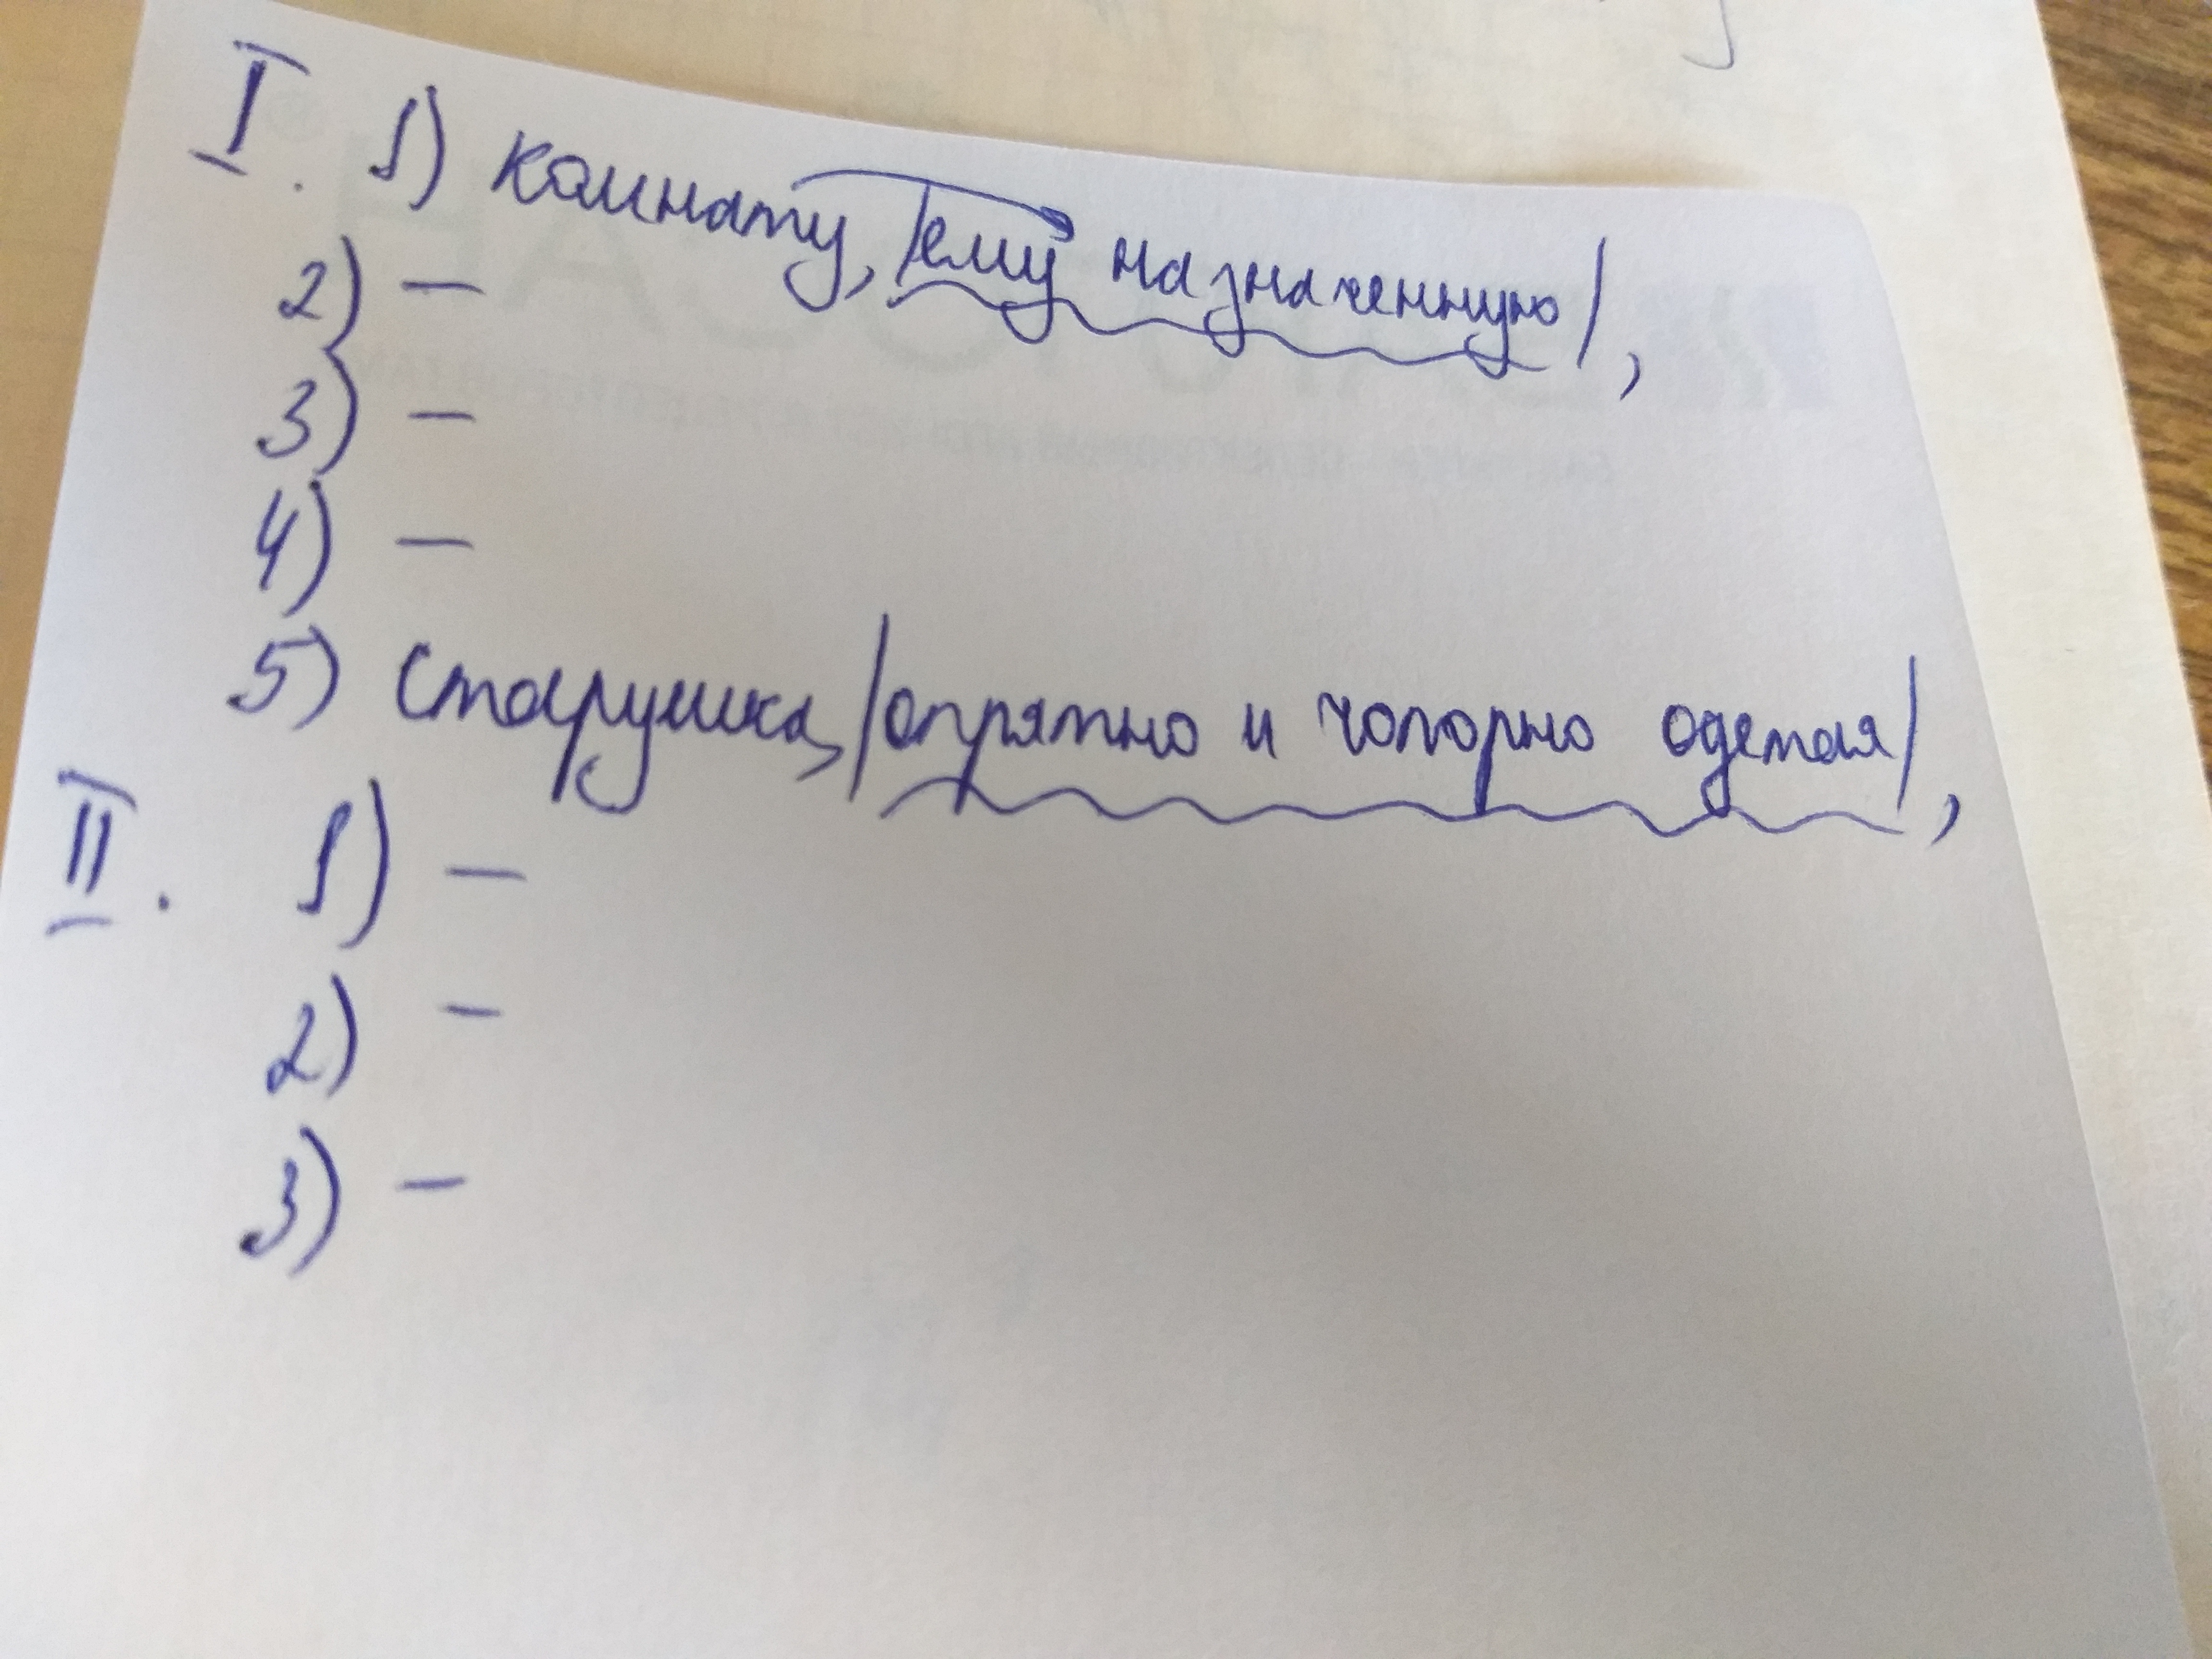 I. 1) комнату, |ему назначенную|,
2) —
3) —
4) —
5) старушка, |опрятно и чопорно одетая|,
II. 1) —
2) —
3) —